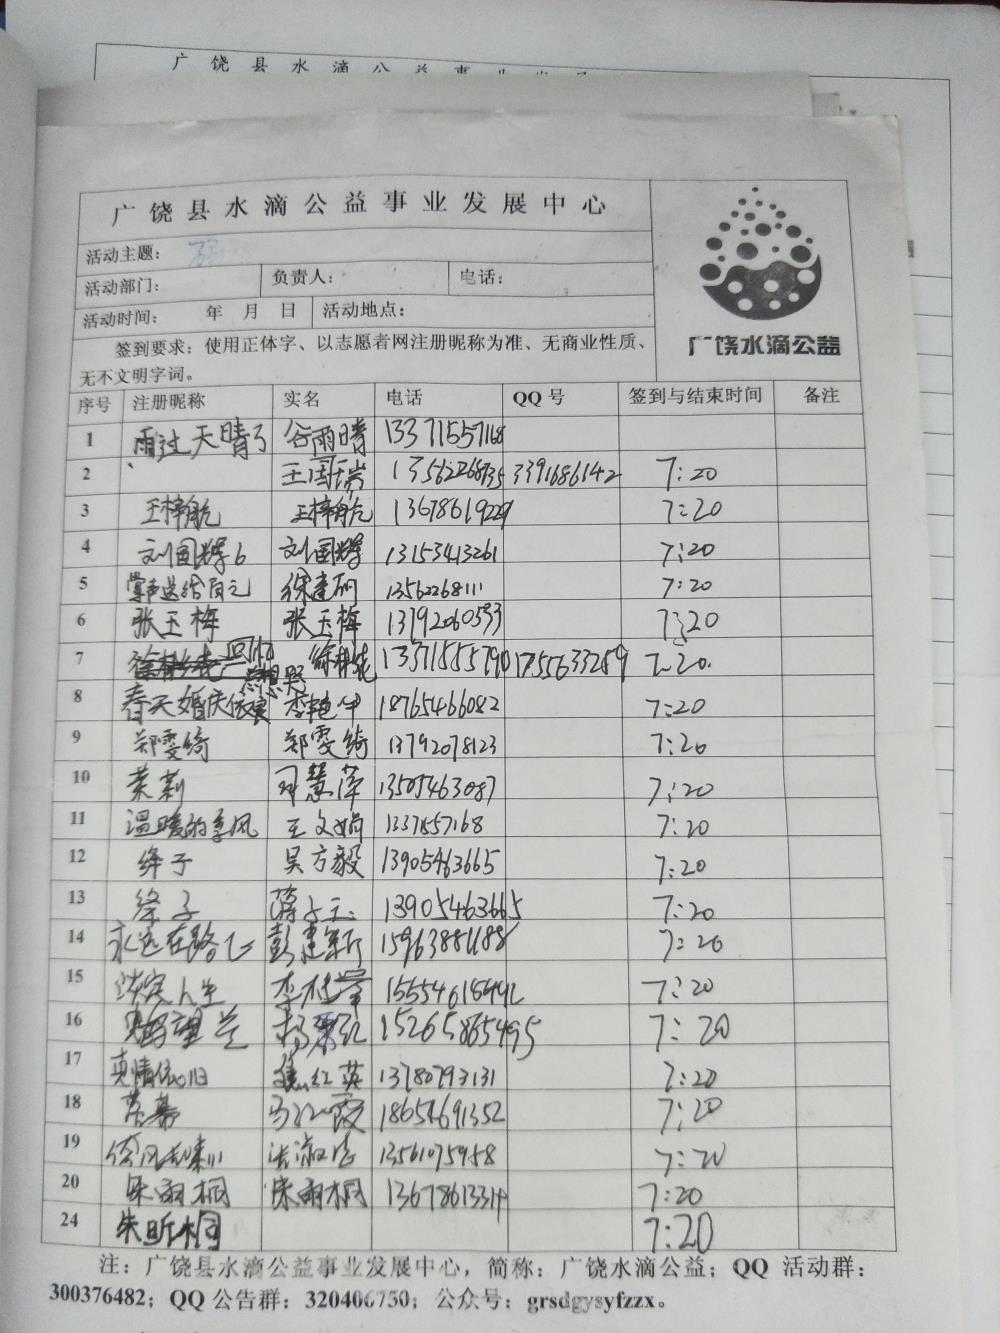 广饶县水滴公益事业发展中心
活动主题：
活动部门： 负责人： 电话：
活动时间： 年 月 日 活动地点：
签到要求：使用正体字、以志愿者网注册昵称为准、无商业性质、
无不文明字词。
广饶水滴公益
序号 注册昵称 实名 电话 QQ号 签到与结束时间 备注
1 雨过天晴了 谷雨晴 13371557168
2 王国瑞 13562268735 3391686142 7:20
3 王梓航 王梓航 13678619229 7:20
4 刘国辉6 刘国辉 13153413261 7:20
5 掌声送给自己 徐建丽 13562268111 7:20
6 张玉梅 张玉梅 13792060533 7:20
7 回归 13371585790 1755633289 7:20
8 春天婚庆 李艳华 18765466082 7:20
9 郑雯绮 郑雯绮 13792078123 7:20
10 茉莉 司慧萍 13505463087 7:20
11 温暖的季风 王文娟 1337557168 7:20
12 绛子 吴方毅 13905463665 7:20
13 绛子 蒋 13905463665 7:20
14 永远在路上 彭建新 7:20
15 淡定人生 李桂常 7:20
16 杨 15265865495 7:20
17 真情依旧 焦红英 13780793131 7:20
18 落幕 马红霞 18654691352 7:20
19 13561075958 7:20
20 朱雨桐 朱雨桐 13678613319 7:20
24 朱昕桐 7:20
注：广饶县水滴公益事业发展中心，简称：广饶水滴公益；QQ 活动群：
300376482；QQ公告群：320406750；公众号：grsdgysyfzzx。